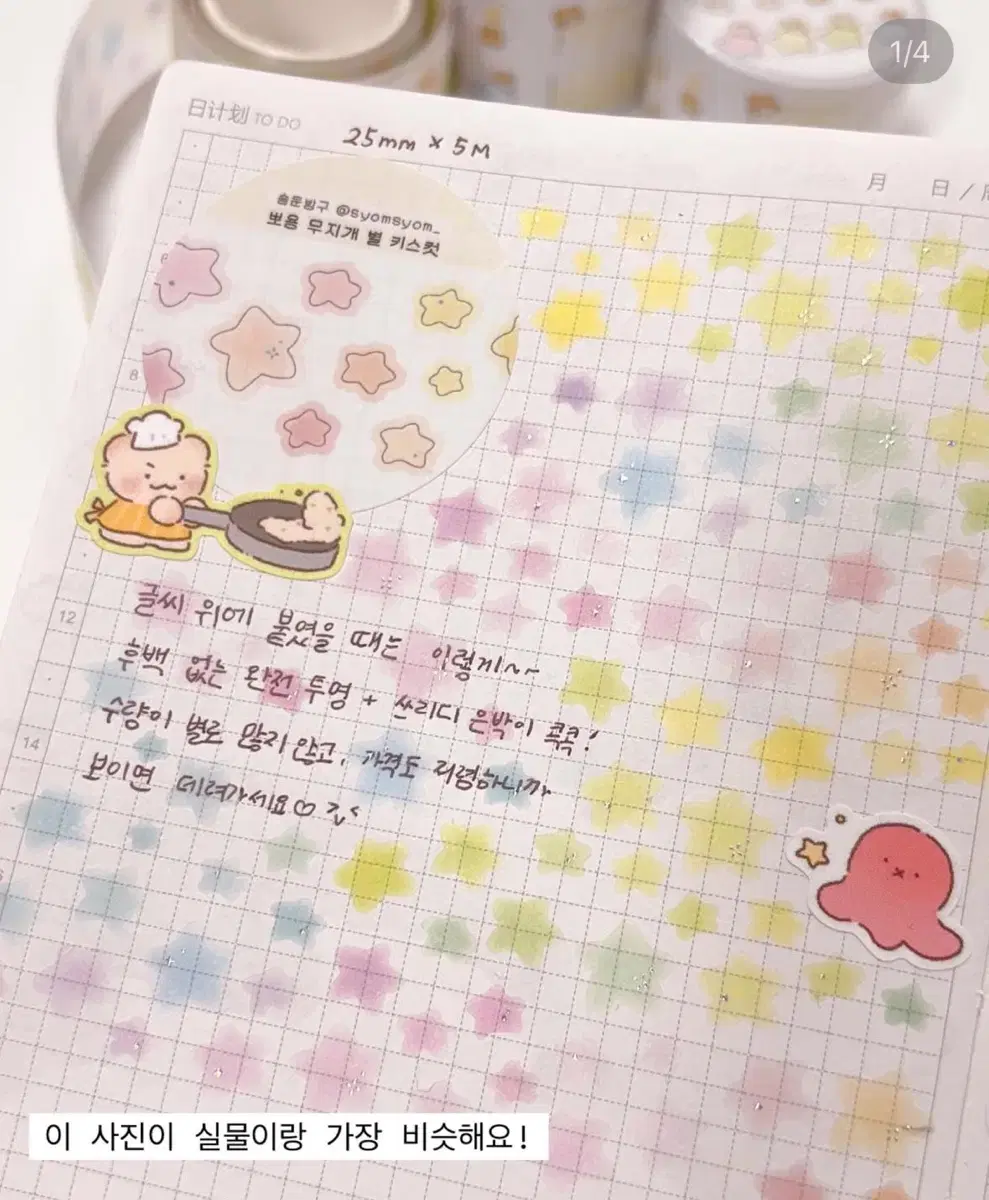 1/4
日计划 TO DO
25mm × 5M
月 日 /
숌둔빙구 @syomsyom_
뽀용 무지개 별 키스컷
8
글씨 위에 붙였을 때는 이렇게~~
후백 없는 완전 투명 + 쓰리디 은박이 콕콕!
수량이 별로 많지 않고, 가격도 저렴하니까
보이면 데려가세요♡
12
14
이 사진이 실물이랑 가장 비슷해요!